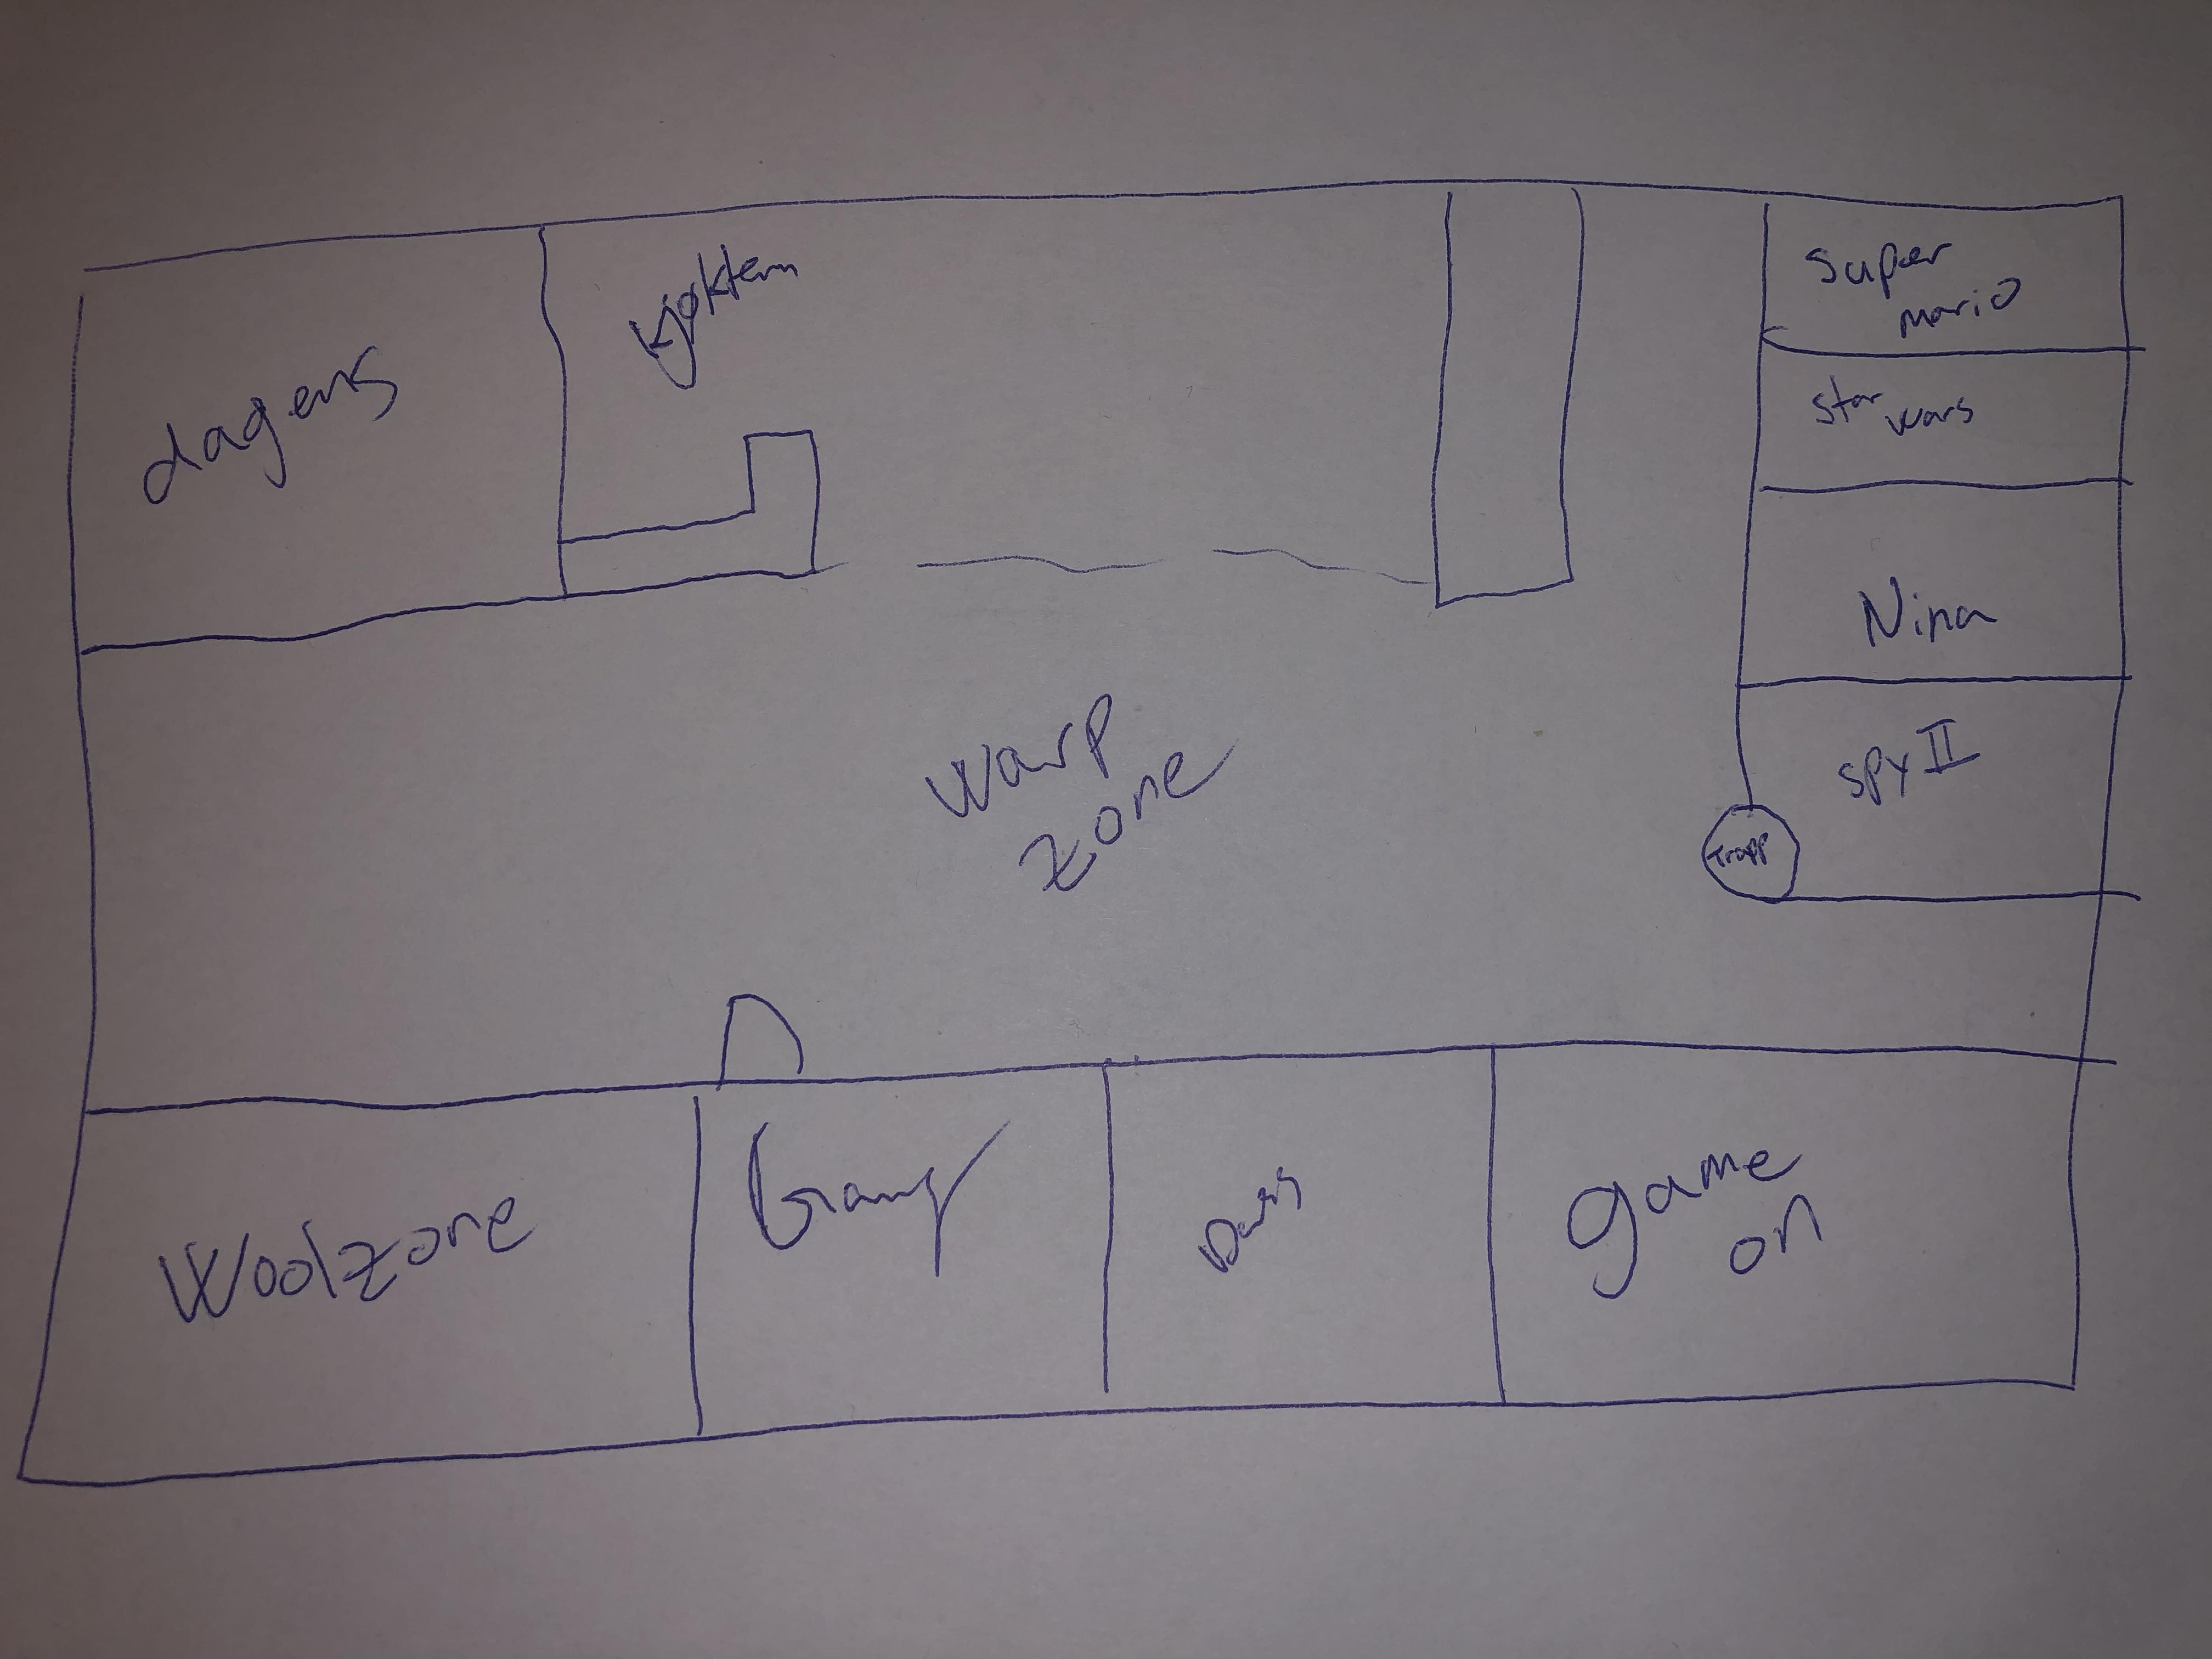 dagens
Kjøkken
Super
Mario
Star wars
Nina
SPY II
Trapp
Warp
zone
Woolzone
Gang
game
on